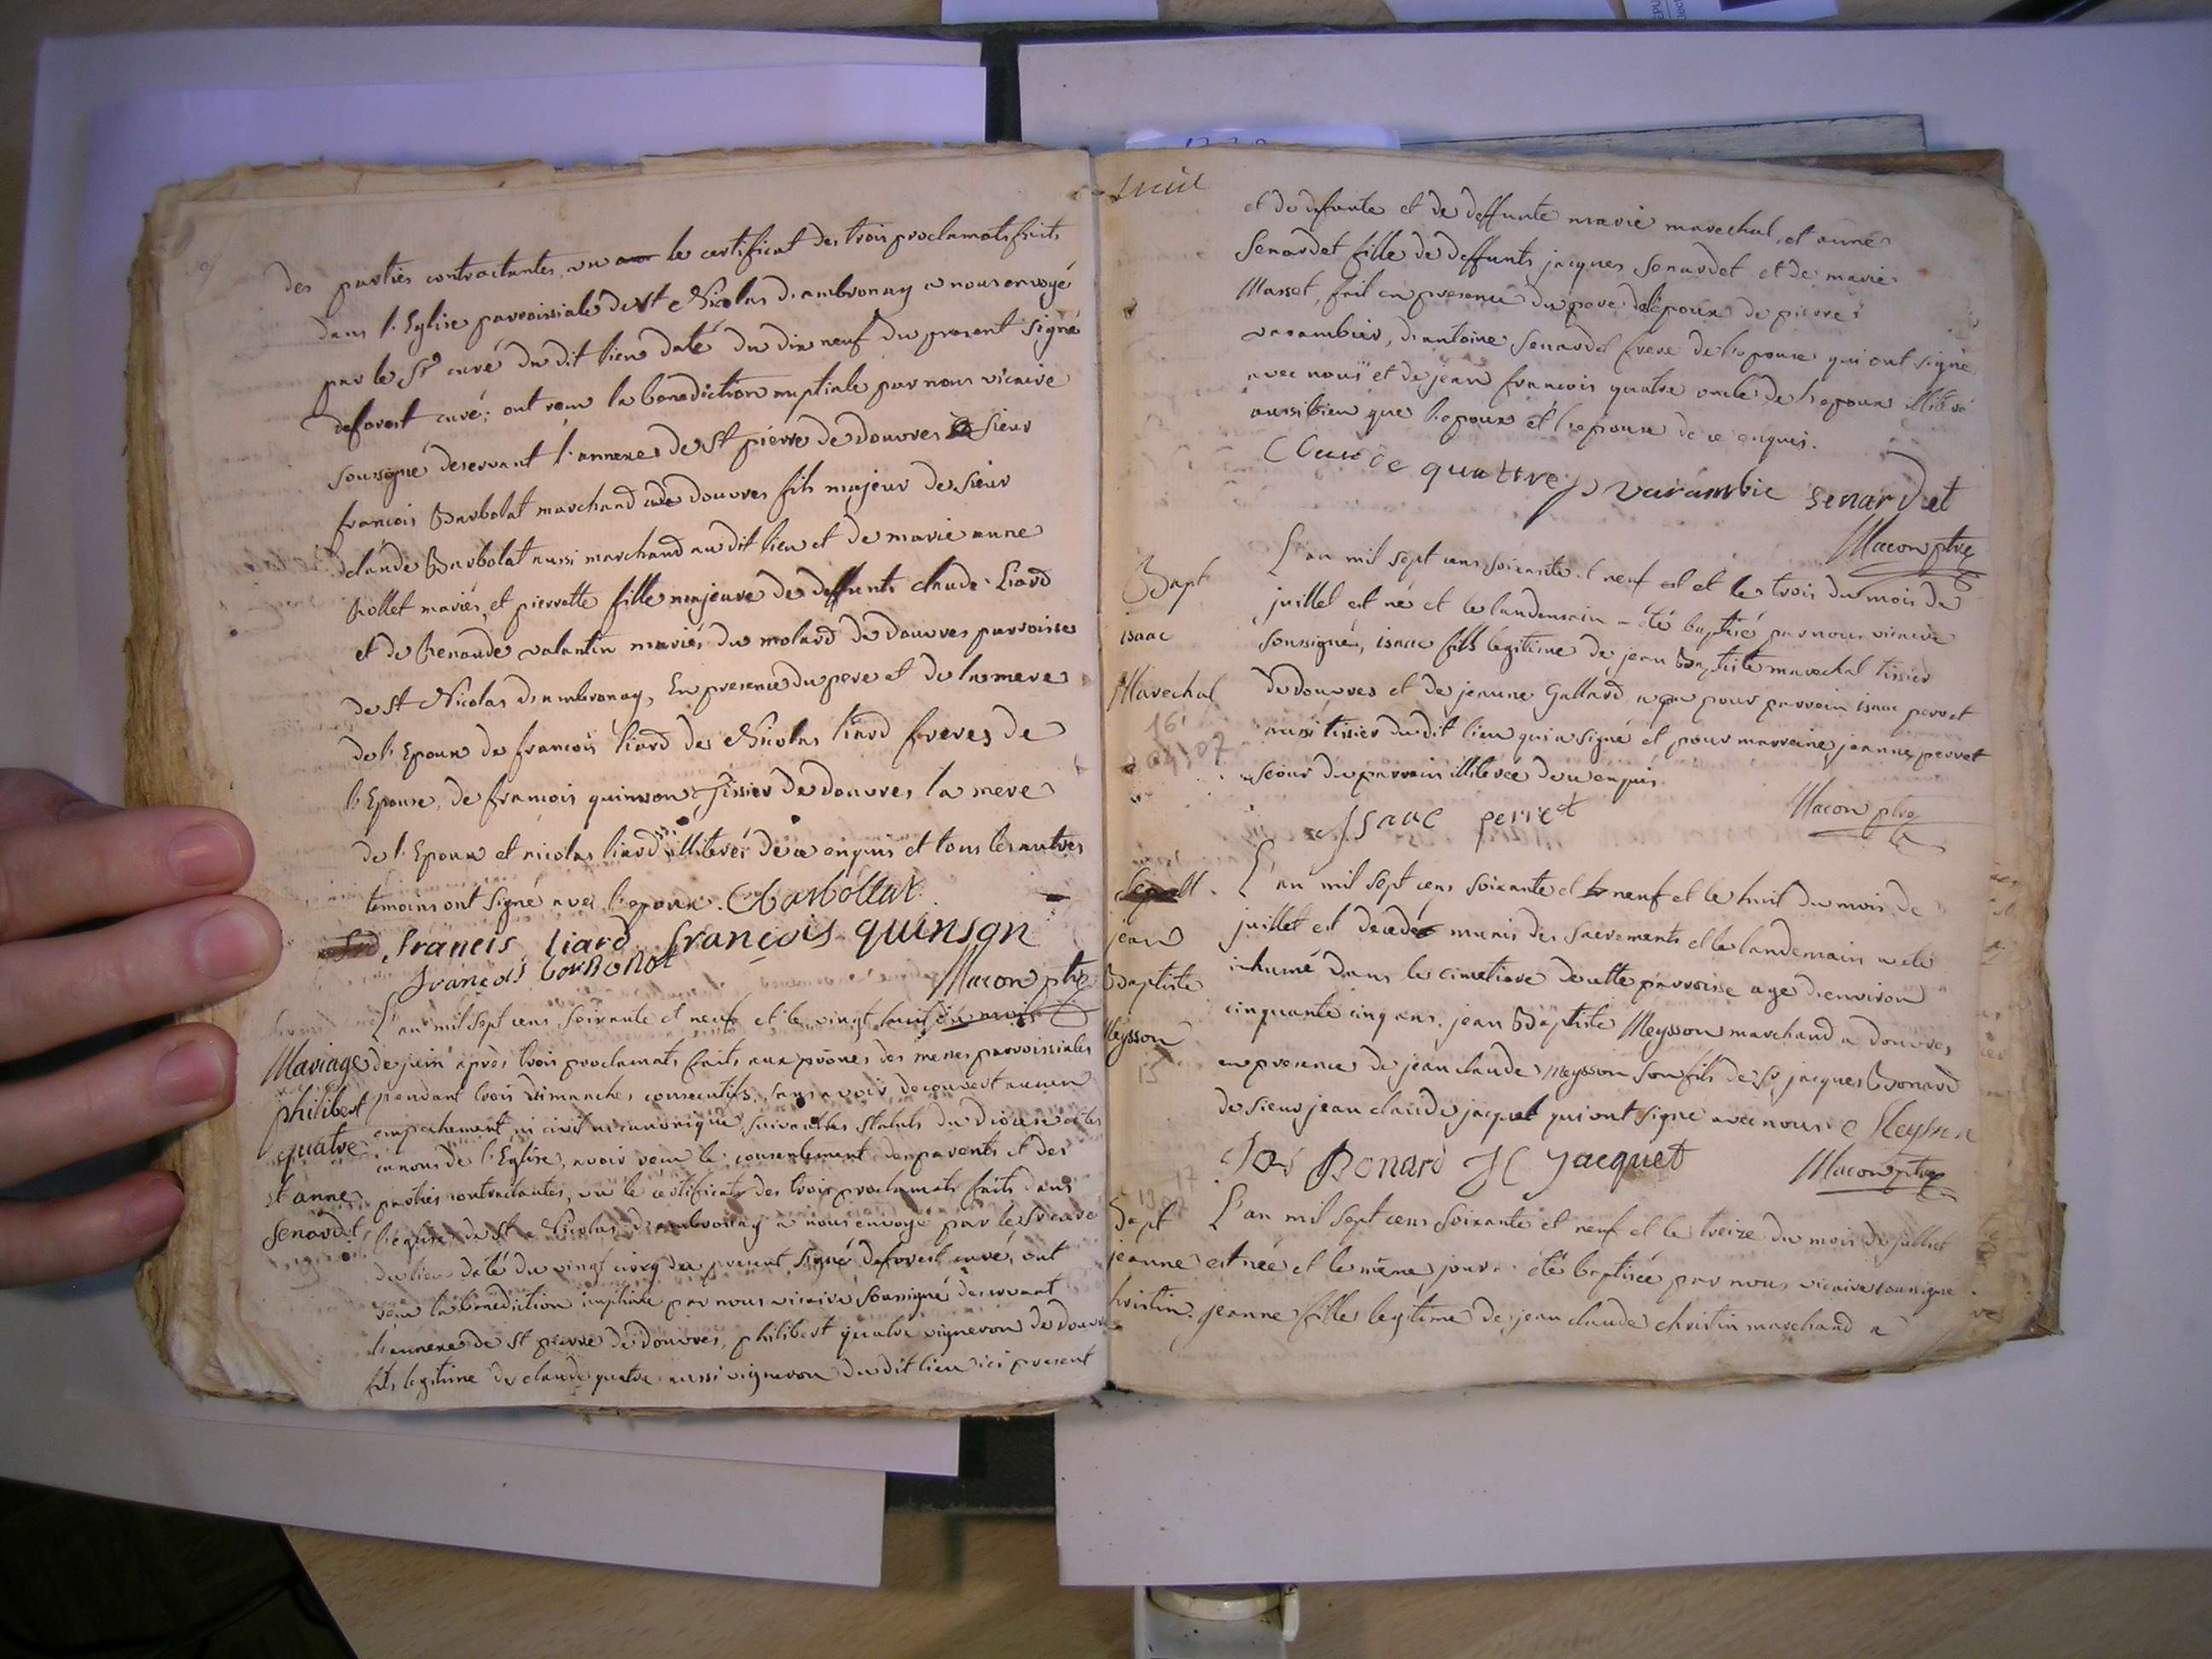 des parties contractantes, vu le certificat des trois proclamats faits
dans l'Eglise parroissiale de st Nicolas d'ambronay a nous envoyé
par le Sr curé du dit lieu daté du dix neuf du present signé
deforest curé; ont recu la benediction nuptiale par nous vicaire
soussigné deservant l'annexe de st pierre de douvres sieur
francois Barbolat marchand de douvres fils majeur de sieur
claude Barbolat aussi marchand au dit lieu et de marie anne
Rollet mariés, et pierrette fille majeure de deffunts claude Liard
et de Renaude valantin mariés du molard de Douvres parroisse
de st Nicolas d'ambronay, En presence du pere et de la mere
de l'Epoux de francois liard de Nicolas liard freres de
l'Epouse, de francois quinson Tissier de douvres la mere
de l'Epoux et nicolas liard illiterés de ce enquis et tous les autres
temoins ont signé avec l'epoux. C barbollat
francis liard françois quinson
françois barbollat
Macon ptre
Mariage
philibert
quatre
et anne
Senardet
L'an mil sept cens soixante et neuf et le vingt huit du mois
de juin après trois proclamats faits aux prônes des messes parroissiales
pendant trois dimanches consecutifs, sans avoir decouvert aucun
empechement ni civil ni canonique, suivant les statuts du diocese et les
canons de l'Eglise, avoir recu le consentement des parents et des
parties contractantes, vu le certificat des trois proclamats faits dans
l'eglise de st Nicolas d'ambronay a nous envoyé par le Sr curé
du lieu daté du vingt cinq du present signé deforest curé, ont
recu la benediction nuptiale par nous vicaire soussigné deservant
l'annexe de st pierre de douvres, philibert quatre vigneron de douvres
fils legitime de claude quatre aussi vigneron du dit lieu ici present
et de defunte et de deffunte marie marechal, et anne
Senardet fille de deffunts jacques Senardet et de marie
Masset, fait en presence du pere de l'epoux de pierre
varambier, d'antoine Senardet frere de l'epouse qui ont signé
avec nous et de jean francois quatre oncle de l'epoux illiteré
aussi bien que l'epoux et l'epouse de ce enquis.
Claude quattre p varambie senardet
Macon ptre
Bapt
isaac
Marechal
L'an mil sept cens soixante et neuf et et le trois du mois de
juillet est né et le landemain a été baptisé par nous vicaire
soussigné, isaac fils legitime de jean Baptiste marechal tissier
de douvres et de jeanne Gallard a eu pour parrain isaac perret
aussi tissier du dit lieu qui a signé et pour marraine jeanne perret
soeur du parrain illiterée de ce enquis.
Isaac perret
Macon ptre
Sepult.
jean
Baptiste
Meysson
15
L'an mil sept cens soixante et neuf et le huit du mois de
juillet est decedé munis des sacrements et le landemain a été
inhumé dans le cimetiere de cette parroisse agé d'environ
cinquante cinq ans. jean Baptiste Meysson marchand a douvres
en presence de jean claude meysson son fils de Sr jacques Bonard
de sieur jean claude jacquet qui ont signé avec nous. C Meyson
Bonard J C Jacquet
Macon ptre
17
Bapt
jeanne
hristin.
L'an mil sept cens soixante et neuf et le treize du mois de juillet
est née et le même jour a été baptisée par nous vicaire soussigné
jeanne fille legitime de jean claude christin marchand a